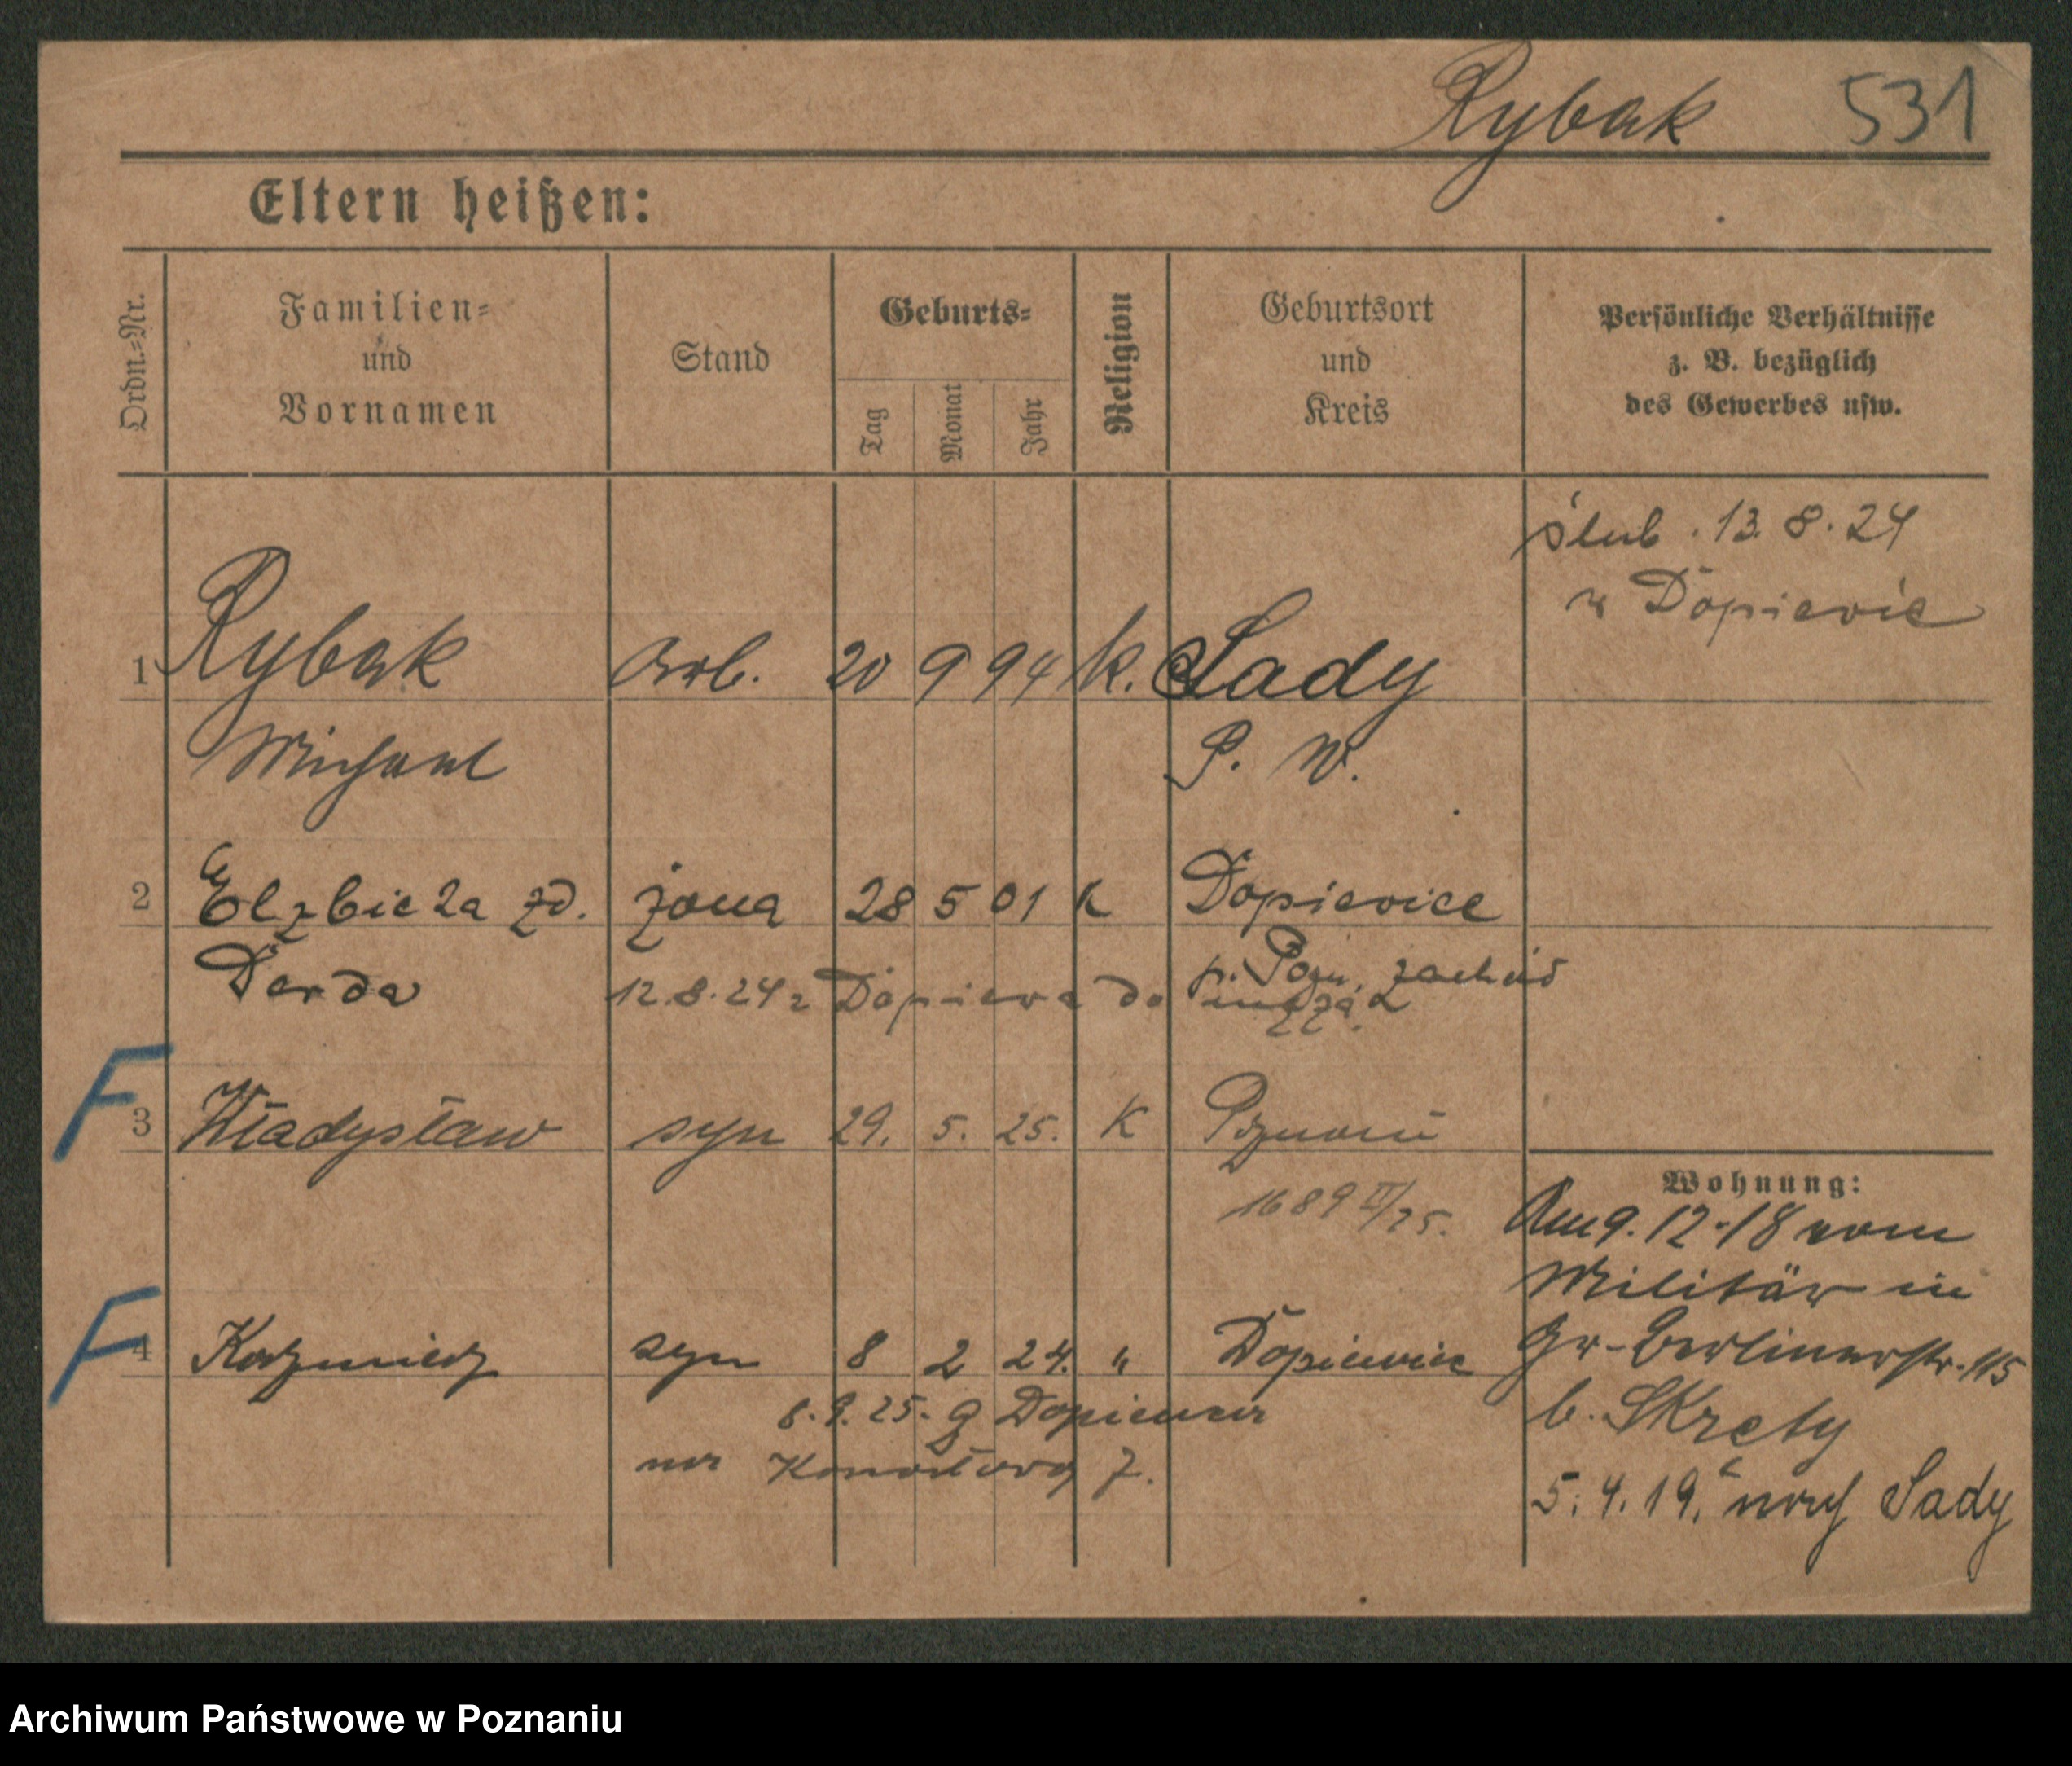 Rybak 531
Eltern heißen:
Ordn.-Nr.
Familien-
und
Vornamen
Stand
Geburts-
Tag
Monat
Jahr
Religion
Geburtsort
und
Kreis
Persönliche Verhältnisse
z. B. bezüglich
des Gewerbes usw.
ślub . 13. 8. 24
w Dopiewie
1 Rybak Arb. 20 9 94 k. Sady
Michael P. W.
2 Elzbieta zd. żona 28 5 01 k Dopiewice
Darda 12.8.24 z Dopiewa do męża
p. Pozn. zachód
F 3 Władysław syn 29. 5. 25. K Poznań
1689 II/25.
Wohnung:
Am 9. 12. 18 vom
Militär in
Gr-Berlinerstr. 115
b. Skrety
5. 4. 19. nach Sady
F 4 Kazmierz syn 8 2 24. " Dopiewice
8. 9. 25. z Dopiewa
na 7.
Archiwum Państwowe w Poznaniu